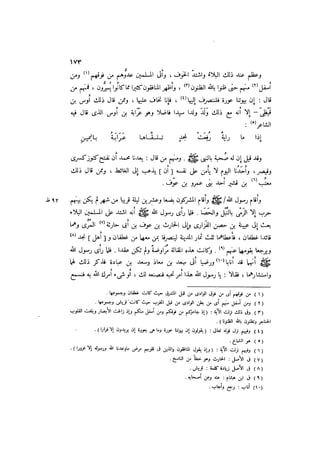 ١٧٣
وعظم عند ذلك البلاء واشتد الخوف ، وأتى المسلمين عدوهم من فوقهم (١) ومن
أسفل (٢) منهم حتى ظنوا بالله الظنون (٣) ، وأظهر المنافقون كثيرا مما كانوا يُسِرُّون ، فمنهم من
قال : إن بيوتنا عورة فلننصرف إليها (٤) ، فإنا نخاف عليها ، وممن قال ذلك أوس بن
قيظى – إلا أنه مع ذلك وَلَد ولدا سيدا فاضلا وهو عرابة بن أوس الذى قال فيه
الشاعر (٥) :
إذا ما رايةٌ رُفِعَتْ لمجدٍ تلـــقـــاهـــا عَـــرَابَـــةُ بـاليمين
وقد قيل إن له صحبة بالنبى ﷺ . ومنهم من قال : يعدنا محمد أن نفتح كنوز كسرى
وقيصر ، وأحدنا اليوم لا يأمن على نفسه [ أن ] يذهب إلى الغائط ، وممن قال ذلك
معتِّب (٦) بن قشير أحد بنى عمرو بن عوف .
وأقام رسول الله / ﷺ وأقام المشركون بضعا وعشرين ليلة قريبا من شهر لم يكن بينهم
٩٢ ظ
حرب إلا الرمى بالنَّبْل والحصا . فلما رأى رسول الله ﷺ أنه اشتد على المسلمين البلاء
بعث إلى عيينة بن حصن الفزارى وإلى الحارث بن عوف بن أبى حارثة (٧) المرى وهما
قائدا غطفان ، فأعطاهما ثلث ثمار المدينة لينصرفا بمن معهما من غطفان و [ أهل ] نجد (٨)
ويرجعا بقومهما عنهم (٩) . وكانت هذه المقالة مُراوضة ولم تكن عقدا . فلما رأى رسول الله
ﷺ أنهما قد أنابا (١٠) ورضيا أتى سعد بن معاذ وسعد بن عبادة فذكر ذلك لهما
واستشارهما ، فقالا : يا رسول الله هذا أمر تحبه فنصنعه لك ، أو شىء أمرك الله به فنسمع
(١) من فوقهم أى من فوق الوادى من قبل المشرق حيث كانت غطفان وجموعها .
(٢) ومن أسفل منهم أى من بطن الوادى من قبل الغرب حيث كانت قريش وجموعها .
(٣) وفى ذلك نزلت الآية : ( إذ جاءوكم من فوقكم ومن أسفل منكم وإذ زاغت الأبصار وبلغت القلوب
الحناجر وتظنون بالله الظنونا ) .
(٤) وفيهم نزل قوله تعالى : ( يقولون إن بيوتنا عورة وما هى بعورة إن يريدون إلا فرارا ) .
(٥) هو الشماخ .
(٦) وفيهم نزلت الآية : ( وإذ يقول المنافقون والذين فى قلوبهم مرض ما وعدنا الله ورسوله إلا غرورا ) .
(٧) فى الأصل : الحارث وهو خطأ من الناسخ .
(٨) فى الأصل زيادة كلمة : قريش .
(٩) فى ابن هشام : عنه وعن أصحابه .
(١٠) أناب : رجع وأجاب .